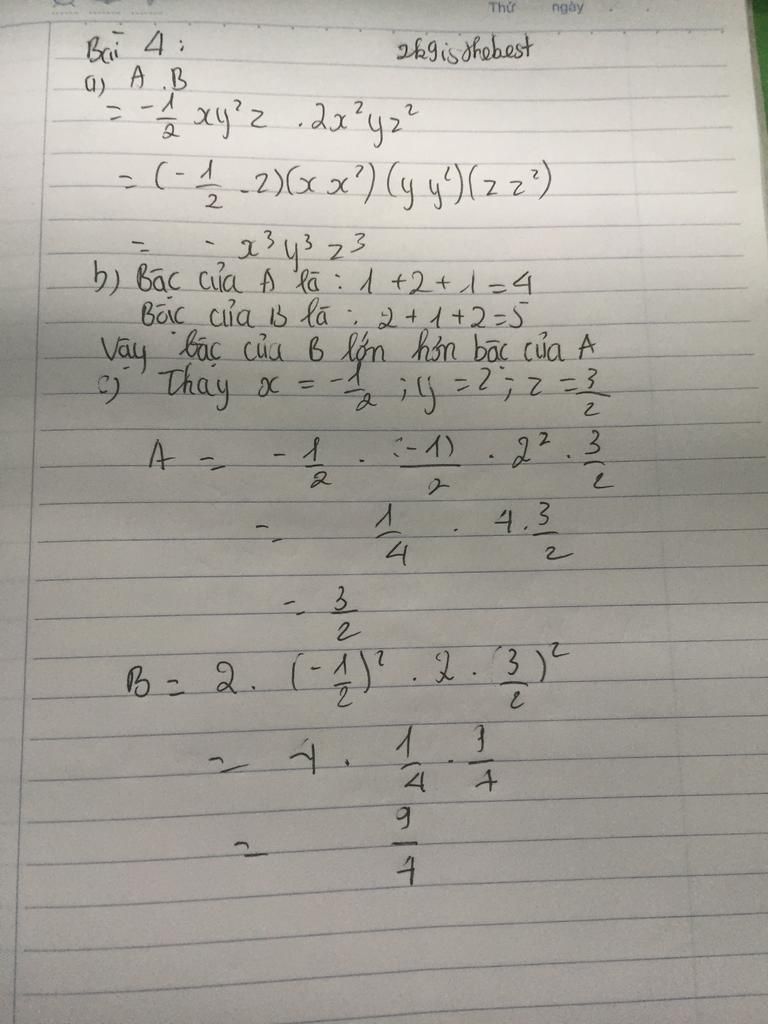 Thứ ngày
Bài 4 : 2k9isthebest
a) A . B
= -1/2 xy²z . 2x²yz²
= (-1/2 . 2)(x x²)(y y²)(z z²)
= - x³y³z³
b) Bậc của A là : 1 + 2 + 1 = 4
Bậc của B là : 2 + 1 + 2 = 5
Vậy bậc của B lớn hơn bậc của A
c) Thay x = -1/2 ; y = 2 ; z = 3/2
A = -1/2 . (-1)/2 . 2² . 3/2
= 1/4 . 4 . 3/2
= 3/2
B = 2 . (-1/2)² . 2 . (3/2)²
= 4 . 1/4 . 9/4
= 9/4